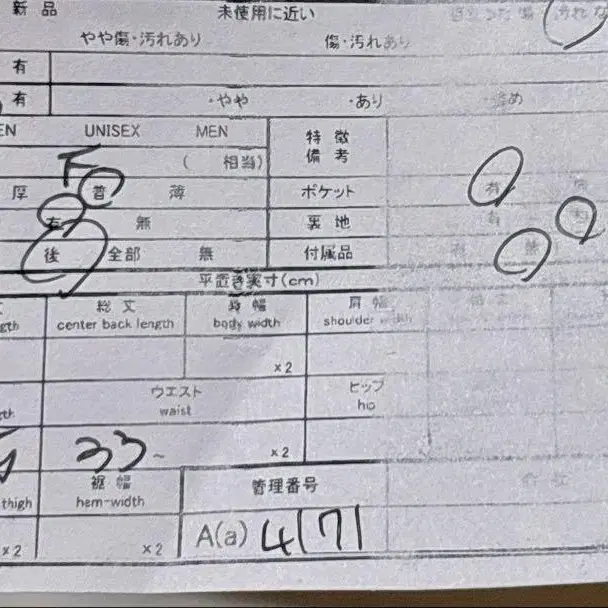 新品 未使用に近い 目立った傷・汚れな
やや傷・汚れあり 傷・汚れあり
有
有 ・やや ・あり ・強め
EN UNISEX MEN 特徴
( 相当) 備考
厚 普 薄 ポケット 有
有 無 裏地 有 無
後 全部 無 付属品 有 無
平置き実寸(cm)
総丈 身幅 肩幅
gth center back length body width shoulder width
×2
ウエスト ヒップ
waist
33~ ×2
裾幅 管理番号
thigh hem-width
×2 ×2 A(a) 4171